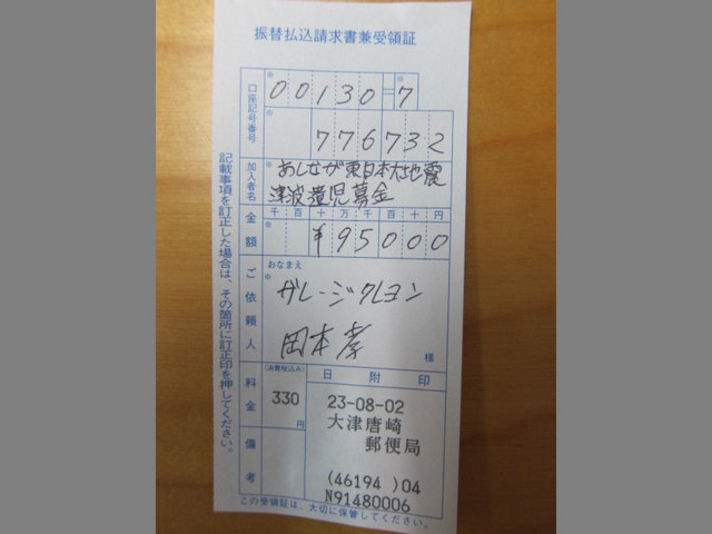 振替払込請求書兼受領証
口座記号番号
※ 00130=※7
※ 776732
加入者名
※ あしなが東日本大地震
津波遺児募金
金額
千百十万千百十円
※ ¥95000
ご依頼人
おなまえ
※
ガレージクレヨン
岡本孝
様
料金
(消費税込み)
330
円
備考
日附印
23-08-02
大津唐崎
郵便局
(46194 )04
N91480006
記載事項を訂正した場合は、その箇所に訂正印を押してください。
この受領証は、大切に保管してください。